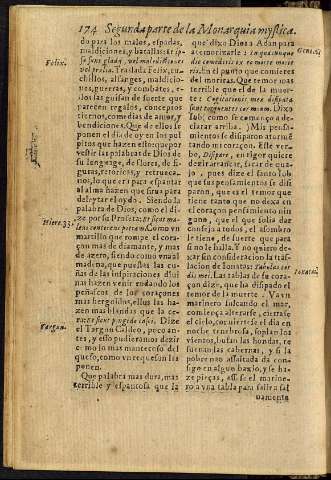 174 Segunda parte de la Monarquia mystica.
do para los males, espadas,
maldiciones, y batallas: et ip
se sunt gladij, vel maldictiones
vel prælia. Traslada Felix, cu
chillos, alfanges, maldicio
nes, guerras, y combates, e
llos las guisan de suerte que
parecen regalos, conceptos
tiernos, comedias de amor, y
bendiciones. Que de ellos se
ponen el dia de oy en los pul
pitos que hazen esto: que por
vestir las palabras de Dios de
su lenguage, de flores, de fi
guras, retoricas, y retrueca
nos, lo que era para espantar
al alma hazen que sirua para
deleytar el oydo. Siendo la
palabra de Dios, como el di
ze por su Profeta: et sicut ma
leus conterens petram. Como vn
martillo que rompe el cora
çon mas de diamante, y mas
de azero, siendo como vna al
madena, que puestas las cu
ñas de las inspiraciones diui
nas hazen venir rodando los
peñascos de los coraçones
mas hergoidos, ellos las ha
zen mas blandas que la ce-
ra: et sunt pinguedo casei. Dize
el Targun Caldeo, pecoran-
tes, y esso pudieramos dezir
como lo mas mantecoso del
queso, como vn requeson las
ponen.
Que palabra mas dura, mas
terrible y espantosa que la
que dixo Dios a Adan para
atemorizarlo: In quacunque
die comederis ex eo morte morie
ris. En el punto que comieres
del moriras. Que temor mas
terrible que el de la muer-
te: Cogitationes meæ dissipatæ
sunt torquentes cor meum. Dixo
Iob; como se començo a de-
clarar arriba. Mis pensa-
mientos se disiparon atormẽ
tando mi coraçon. Este ver-
bo, Dissipare, en rigor quiere
dezir desparcirse, sacar de qua
jo, pues dize el santo Iob
que sus pensamientos se disi
paron, que es el temor que
tiene tanto que no dexa en
el coraçon pensamiento nin
guno, que el que solia dar
consejo a todos, el assombro
le tiene, de suerte que para
si no le halla. Y no quiero de-
xar sin consideracion la tras-
lacion de Ionatas: Tabulæ cor
dis mei. Las tablas de su cora-
çon dize, que ha disipado el
temor de la muerte. Va vn
marinero sulcando el mar,
comiença alterarse, cierrase
el cielo, conuierte el dia en
noche tenebrosa, soplan los
vientos, bufan las hondas, re
suenan las cabernas, y si la
pobre nao assaltada da con
sigo en algun baxio, y se ha-
ze pieças, assi se el marine-
ro a vna tabla para salir a sal
uamento
Felix.
Hiere. 23.
Targum.
Gene.
Ionatã.